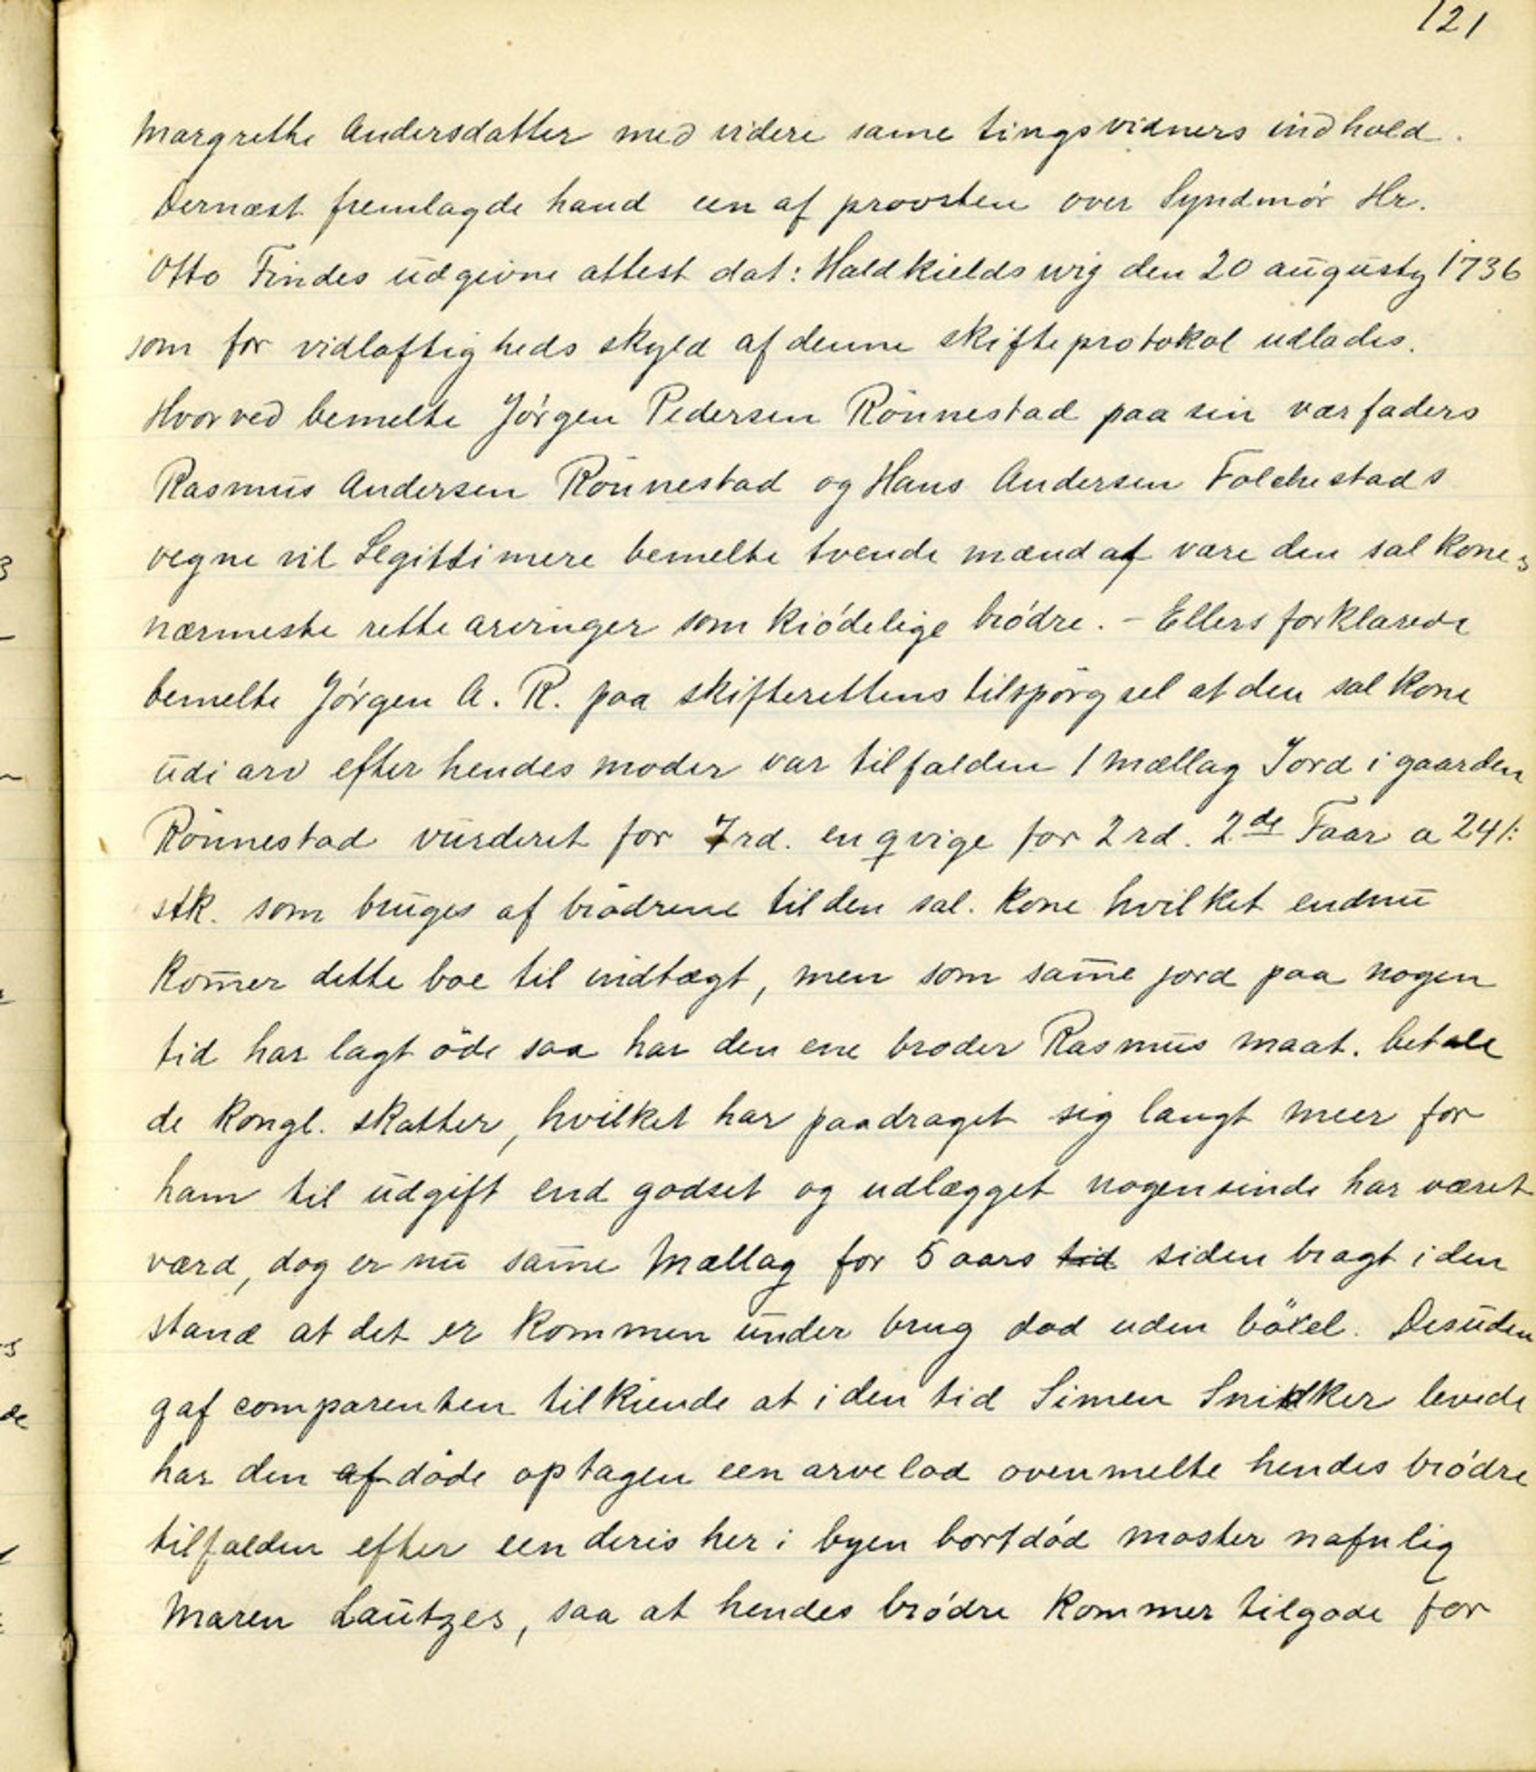 121
Margrethe Andersdatter med videre same tingsvidners indhold.
Dernæst fremlagde hand een af provsten over Syndmør Hr.
Otto Findes udgivne attest dat: Haldkields wig den 20 augusty 1736
som for vidløftigheds skyld af denne skifteprotokol udlades.
Hvorved bemelte Jørgen Pedersen Rönnestad paa sin værfaders
Rasmus Andersen Rönnestad og Hans Andersen Folchestads
vegne vil Legittimere bemelte tvende mænd at være den sal kones
nærmeste rette arvinger som kiødelige brødre. - Ellers forklarede
bemelte Jørgen A. R. paa skifterettens tilspørgsel at den sal kone
udi arv efter hendes moder var tilfalden 1 mællag Jord i gaarden
Rönnestad vurderet for 7rd. en qvige for 2 rd. 2de Faar a 24/:
stk. som bruges af brødrene til den sal. kone hvilket endnu
kom̄er dette boe til indtægt, men som sam̄e jord paa nogen
tid har lagt öde saa har den ene broder Rasmus maat. betale
de kongl. skatter, hvilket har paadraget sig langt meer for
ham til udgift end godset og udlægget nogensinde har været
værd, dog er nu sam̄e Mællag for 5 aars tid siden bragt i den
stand at det er kommen under brug dod uden böxel. Desuden
gaf comparenten tilkiende at i den tid Simen Snidker levede
har den afdøde optagen een arvelod ovenmelte hendes brødre
tilfalden efter een deris her i byen bortdød moster nafnlig
Maren Lautzes, saa at hendes brødre kommer tilgode for